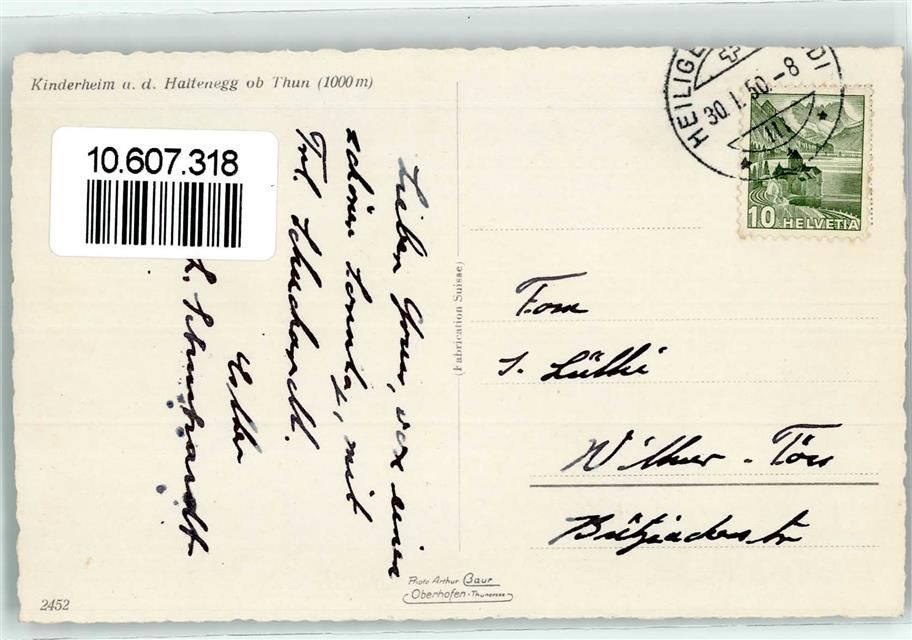 Kinderheim a. d. Haltenegg ob Thun (1000 m)
10.607.318
Lieben Gruss, von einem
schönen Sonntag, mit
Frl. Schuchardt.
Esther
L. Schuchardt
(Fabrication Suisse)
HEILIGE
30.I.50.-8
10 HELVETIA
Fam
J. Lüthi
Töss
Photo Arthur Baur
Oberhofen - Thunersee
2452